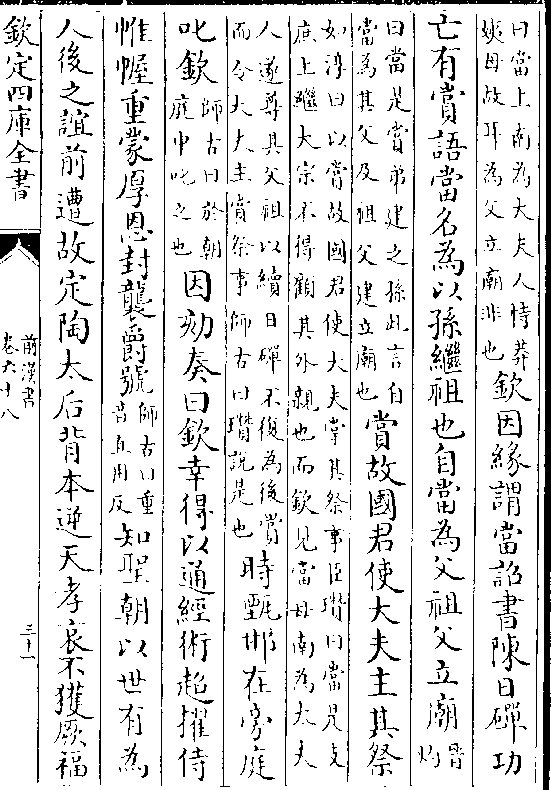 曰當上南為大夫人恃莽
姨母故耳為父立廟非也
欽因緣謂當詔書陳日磾功
亡有賞語當名為以孫繼祖也自當為父祖父立廟
晉
灼
曰當是賞弟建之孫此言自
當為其父及祖父建立廟也
賞故國君使大夫主其祭
如淳曰以賞故國君使大夫掌其祭事臣瓉曰當是支
庶上繼大宗不得顧其外親也而欽見當母南為大夫
人遂尊其父祖以續日磾不復為後賞
而令大夫主賞祭事師古曰瓉說是也
時甄邯在旁庭
叱欽
師古曰於朝
庭中叱之也
因劾奏曰欽幸得以通經術超擢侍
帷幄重蒙厚恩封襲爵號
師古曰重
音直用反
知聖朝以世有為
人後之誼前遭故定陶太后背本逆天孝哀不獲厥福
欽定四庫全書
前漢書
卷六十八
三十一